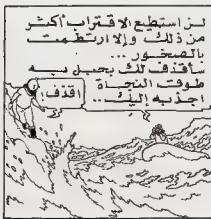 لن استطيع الاقتراب أكثر
من ذلك وإلا ارتطمت
بالصخور ...
سأقذف لك بحبل به
طوق النجاة
اجذبه إليك ...
اقذف!